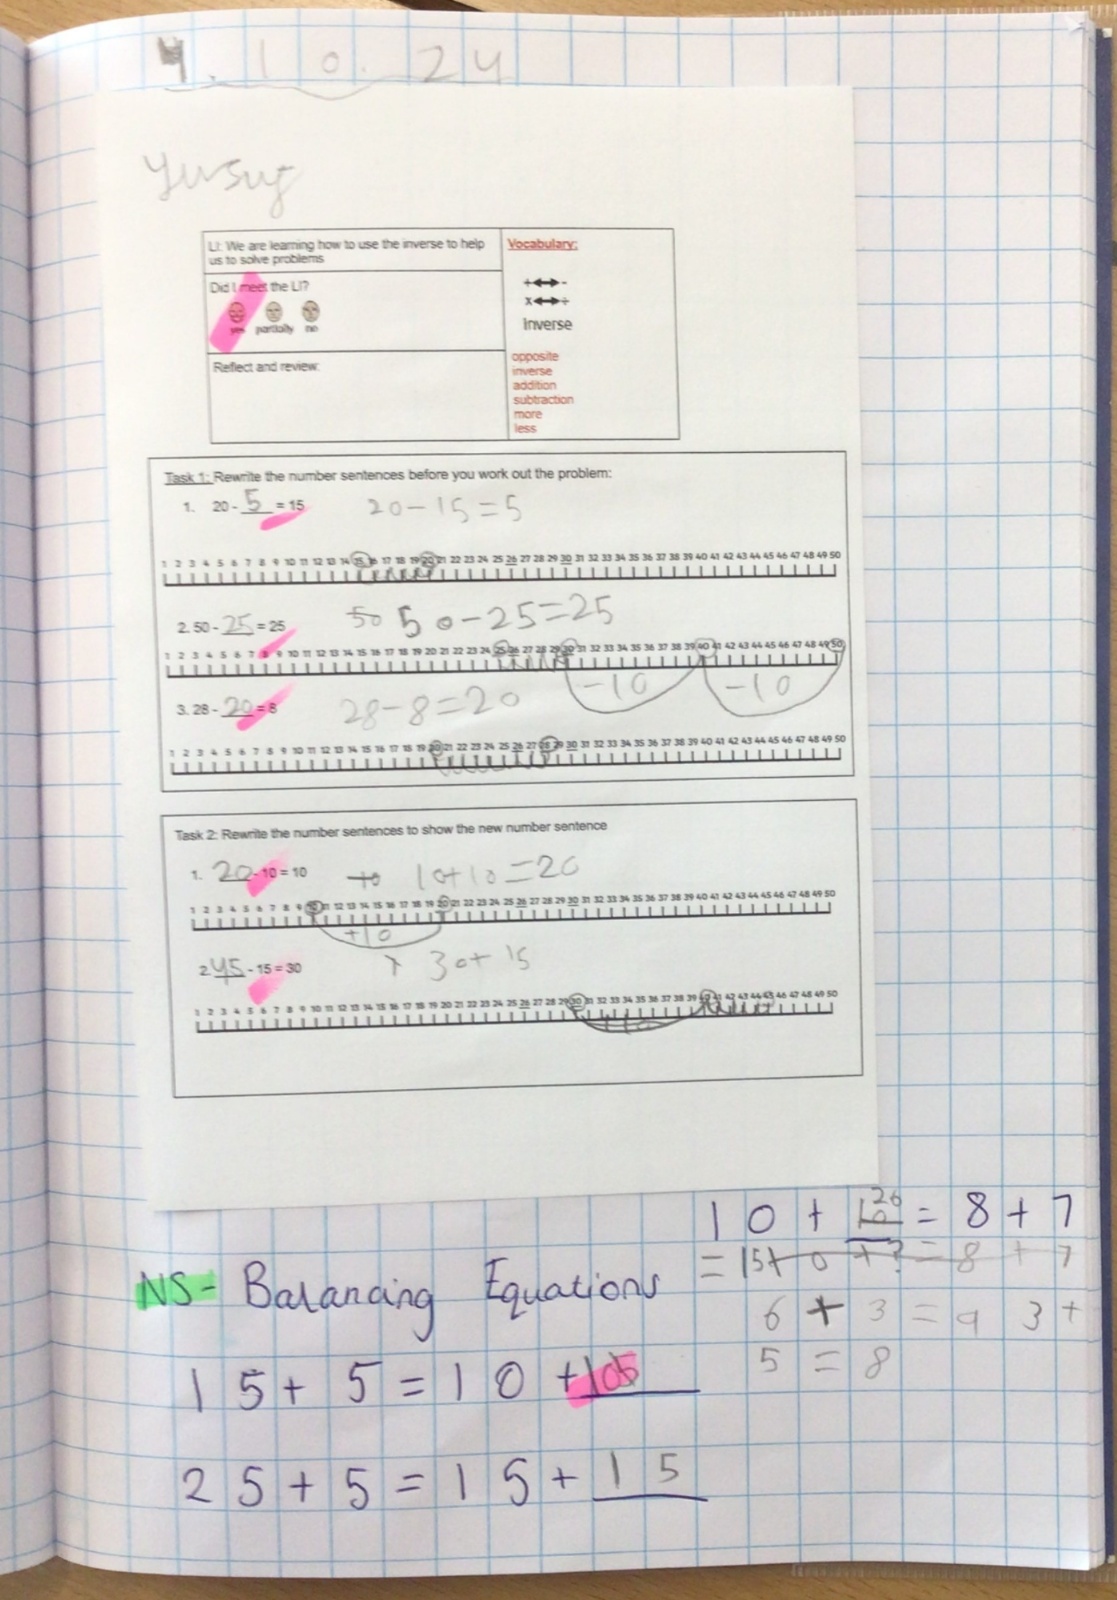 4.10.24
Yusuf
LI: We are learning how to use the inverse to help
us to solve problems
Did I meet the LI?
yes partially no
Reflect and review:
Vocabulary:
+↔-
x↔÷
Inverse
opposite
inverse
addition
subtraction
more
less
Task 1: Rewrite the number sentences before you work out the problem:
1. 20 - 5 = 15 20-15=5
1 2 3 4 5 6 7 8 9 10 11 12 13 14 15 16 17 18 19 20 21 22 23 24 25 26 27 28 29 30 31 32 33 34 35 36 37 38 39 40 41 42 43 44 45 46 47 48 49 50
2. 50 - 25 = 25 50 50-25=25
1 2 3 4 5 6 7 8 9 10 11 12 13 14 15 16 17 18 19 20 21 22 23 24 25 26 27 28 29 30 31 32 33 34 35 36 37 38 39 40 41 42 43 44 45 46 47 48 49 50
-10 -10
3. 28 - 20 = 8 28-8=20
1 2 3 4 5 6 7 8 9 10 11 12 13 14 15 16 17 18 19 20 21 22 23 24 25 26 27 28 29 30 31 32 33 34 35 36 37 38 39 40 41 42 43 44 45 46 47 48 49 50
Task 2: Rewrite the number sentences to show the new number sentence
1. 20 - 10 = 10 10+10=20
1 2 3 4 5 6 7 8 9 10 11 12 13 14 15 16 17 18 19 20 21 22 23 24 25 26 27 28 29 30 31 32 33 34 35 36 37 38 39 40 41 42 43 44 45 46 47 48 49 50
+10
2 45 - 15 = 30 30+15
1 2 3 4 5 6 7 8 9 10 11 12 13 14 15 16 17 18 19 20 21 22 23 24 25 26 27 28 29 30 31 32 33 34 35 36 37 38 39 40 41 42 43 44 45 46 47 48 49 50
+10
NS- Balancing Equations
15+5=10+
25+5=15+15
10+ = 8+7
=15+0+?=8+7
6+3=9 3+
5=8